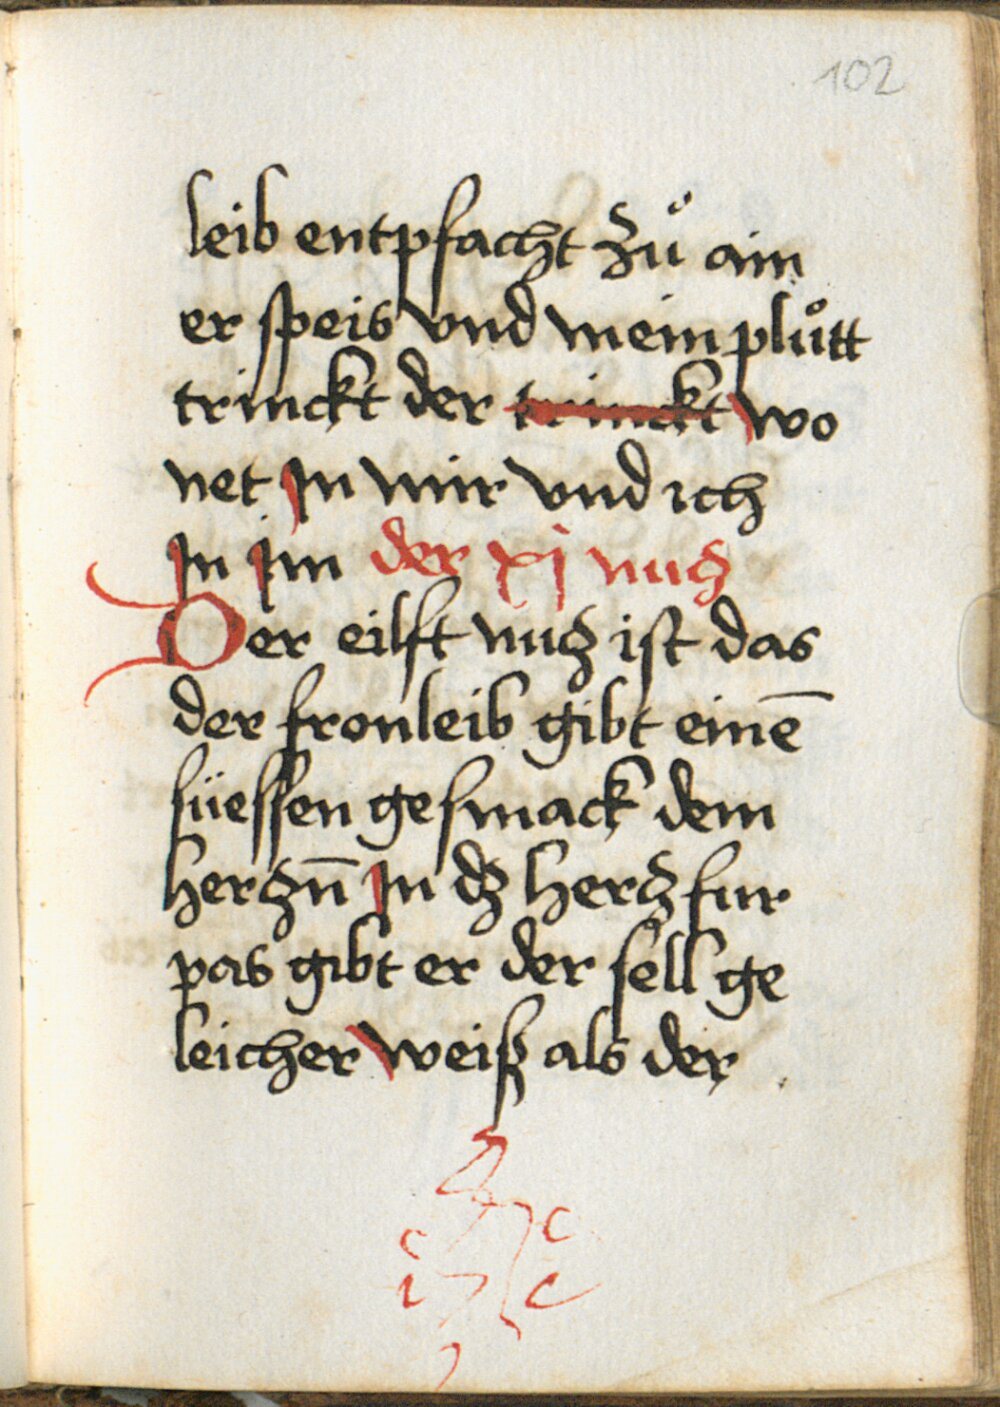 102
leib entpfacht zů ain
er speis vnd mein plůtt
trinckt der trinckt wo
net Jn mir vnd ich
Jn Jm der xj nucz
Der eilft nucz ist das
der fronleib gibt einē
süessen gesmack dem
herczn̄ Jn dz hercz fur
pas gibt er der sell ge
leicher weiß als der